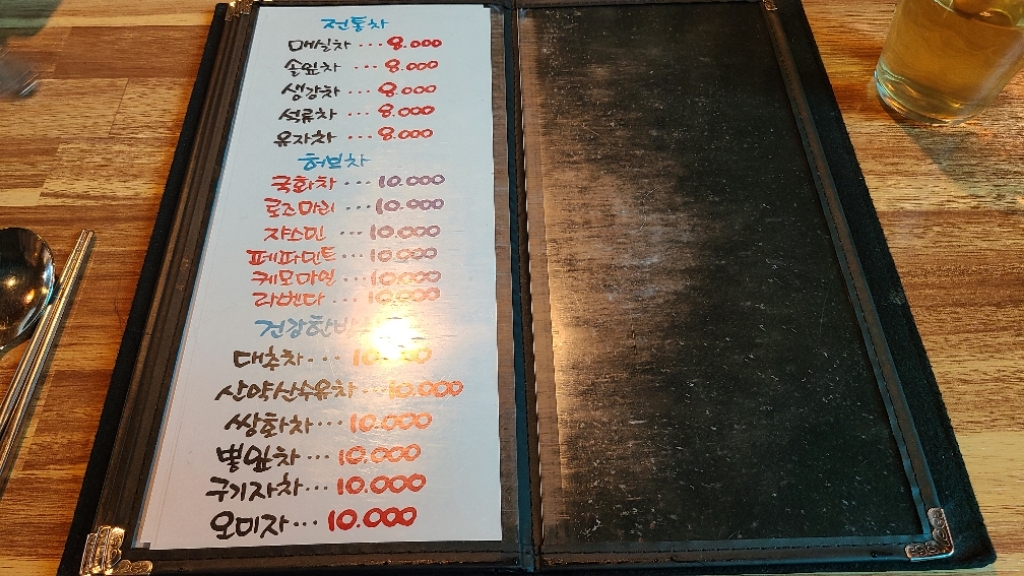 전통차
매실차 ... 8.000
솔잎차 ... 8.000
생강차 ... 8.000
석류차 ... 8.000
유자차 ... 8.000
허브차
국화차 ... 10.000
로즈마리 ... 10.000
쟈스민 ... 10.000
페파민트 ... 10.000
케모마일 ... 10.000
라벤다 ... 10.000
건강한방
대추차 ... 10.000
산약산수유차 ... 10.000
쌍화차 ... 10.000
뽕잎차 ... 10.000
구기자차 ... 10.000
오미자 ... 10.000